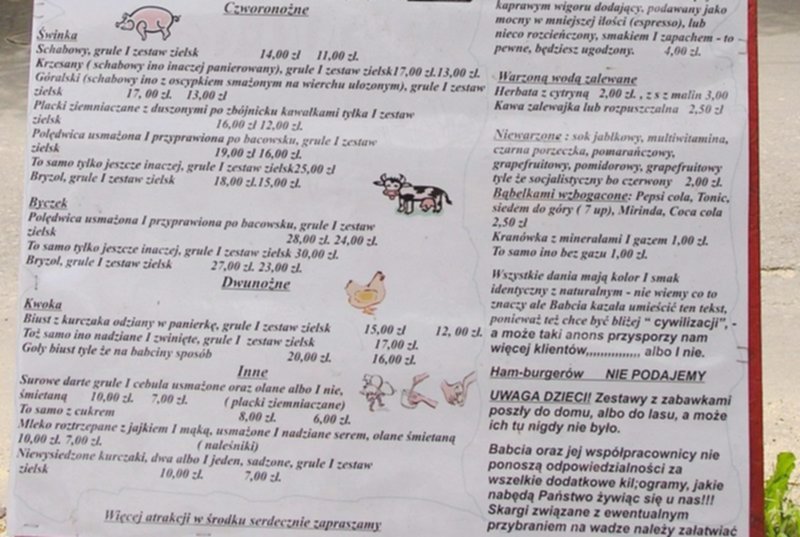 Czworonożne
Świnka
Schabowy, grule I zestaw zielsk 14,00 zł 11,00 zł.
Krzesany ( schabowy ino inaczej panierowany), grule I zestaw zielsk17,00 zł.13,00 zł.
Góralski (schabowy ino z oscypkiem smażonym na wierchu ułożonym), grule I zestaw
zielsk 17, 00 zł. 13,00 zł
Placki ziemniaczane z duszonymi po zbójnicku kawałkami tyłka I zestaw
16,00 zł 12,00 zł.
Polędwica usmażona I przyprawiona po bacowsku, grule I zestaw
zielsk 19,00 zł 16,00 zł.
To samo tylko jeszcze inaczej, grule I zestaw zielsk25,00 zł
Bryzol, grule I zestaw zielsk 18,00 zł.15,00 zł.
Byczek
Polędwica usmażona I przyprawiona po bacowsku, grule I zestaw
zielsk 28,00 zł. 24,00 zł.
To samo tylko jeszcze inaczej, grule I zestaw zielsk 30,00 zł.
Bryzol, grule I zestaw zielsk 27,00 zł. 23,00 zł.
Dwunożne
Kwoka
Biust z kurczaka odziany w panierkę, grule I zestaw zielsk 15,00 zł 12, 00 zł.
Toż samo ino nadziane I zwinięte, grule I zestaw zielsk 17,00 zł.
Goły biust tyle że na babciny sposób 20,00 zł. 16,00 zł.
Inne
Surowe darte grule I cebula usmażone oraz olane albo I nie,
śmietaną 10,00 zł. 7,00 zł. ( placki ziemniaczane)
To samo z cukrem 8,00 zł. 6,00 zł.
Mleko roztrzepane z jajkiem I mąką, usmażone I nadziane serem, olane śmietaną
10,00 zł. 7,00 zł. ( naleśniki)
Niewysiedzone kurczaki, dwa albo I jeden, sadzone, grule I zestaw
zielsk 10,00 zł. 7,00 zł.
Więcej atrakcji w środku serdecznie zapraszamy
kaprawym wigoru dodający, podawany jako
mocny w mniejszej ilości (espresso), lub
nieco rozcieńczony, smakiem I zapachem - to
pewne, będziesz ugodzony. 4,00 zł.
Warzoną wodą zalewane
Herbata z cytryną 2,00 zł. , z s z malin 3,00
Kawa zalewajka lub rozpuszczalna 2,50 zł
Niewarzone : sok jabłkowy, multiwitamina,
czarna porzeczka, pomarańczowy,
grapefruitowy, pomidorowy, grapefruitowy
tyle że socjalistyczny bo czerwony 2,00 zł.
Bąbelkami wzbogacone: Pepsi cola, Tonic,
siedem do góry ( 7 up), Mirinda, Coca cola
2,50 zł
Kranówka z minerałami I gazem 1,00 zł.
To samo ino bez gazu 1,00 zł.
Wszystkie dania mają kolor I smak
identyczny z naturalnym - nie wiemy co to
znaczy ale Babcia kazała umieścić ten tekst,
ponieważ też chce być bliżej “ cywilizacji”, -
a może taki anons przysporzy nam
więcej klientów,,,,,,,,,,,,,, albo I nie.
Ham-burgerów NIE PODAJEMY
UWAGA DZIECI! Zestawy z zabawkami
poszły do domu, albo do lasu, a może
ich tu nigdy nie było.
Babcia oraz jej współpracownicy nie
ponoszą odpowiedzialności za
wszelkie dodatkowe kil;ogramy, jakie
nabędą Państwo żywiąc się u nas!!!
Skargi związane z ewentualnym
przybraniem na wadze należy załatwiać